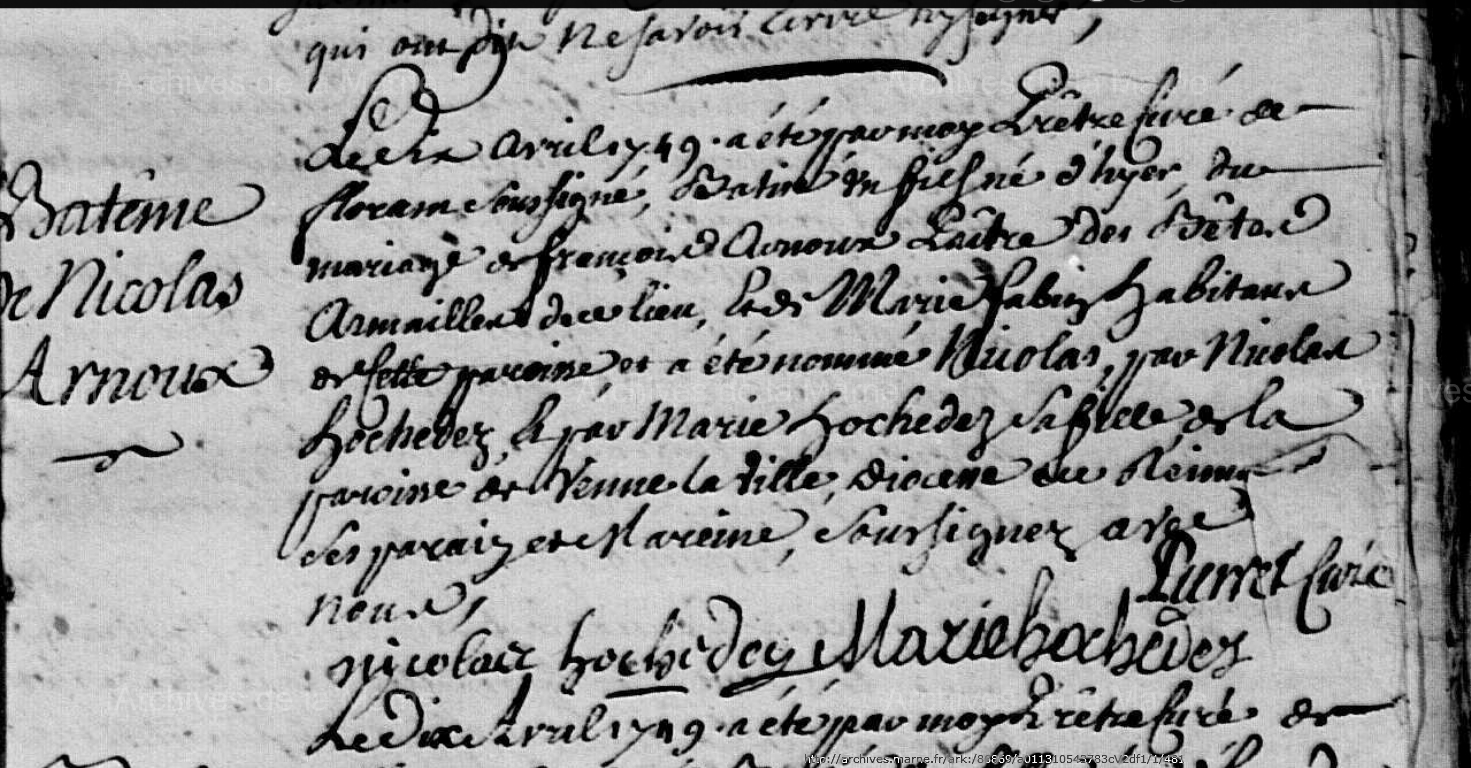 qui ont dit ne savoir écrire ny signer,
Batême
de Nicolas
Arnoux
Le dix Avril 1749. a été par moy Prêtre Curé de
florent soussigné, Batisé un fils né d'hyer, du
mariage de françois Arnoux Paître des Bêtes
Armailles de ce lieu, et de Marie habitans
de cette paroisse et a été nommé Nicolas, par Nicolas
hochedez, et par Marie hochedez sa fille, de la
paroisse de Vienne la Ville, Diocese de Reims
ses parain et Mareine, soussignez avec
nous,
Curé
nicolas hochedez Marie hochedez
Le Dix Avril 1749. a été par moy Prêtre Curé de
http://archives.marne.fr/ark:/86869/a011310543783cV2df1/1/481